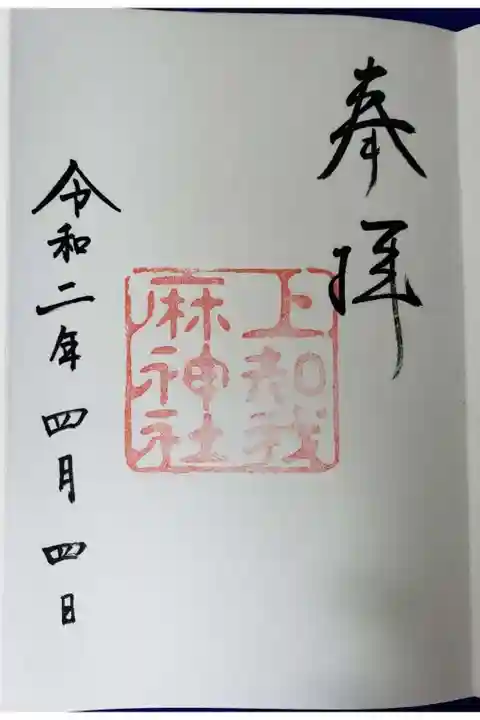 奉拝
上知我
麻神社
令和二年四月四日